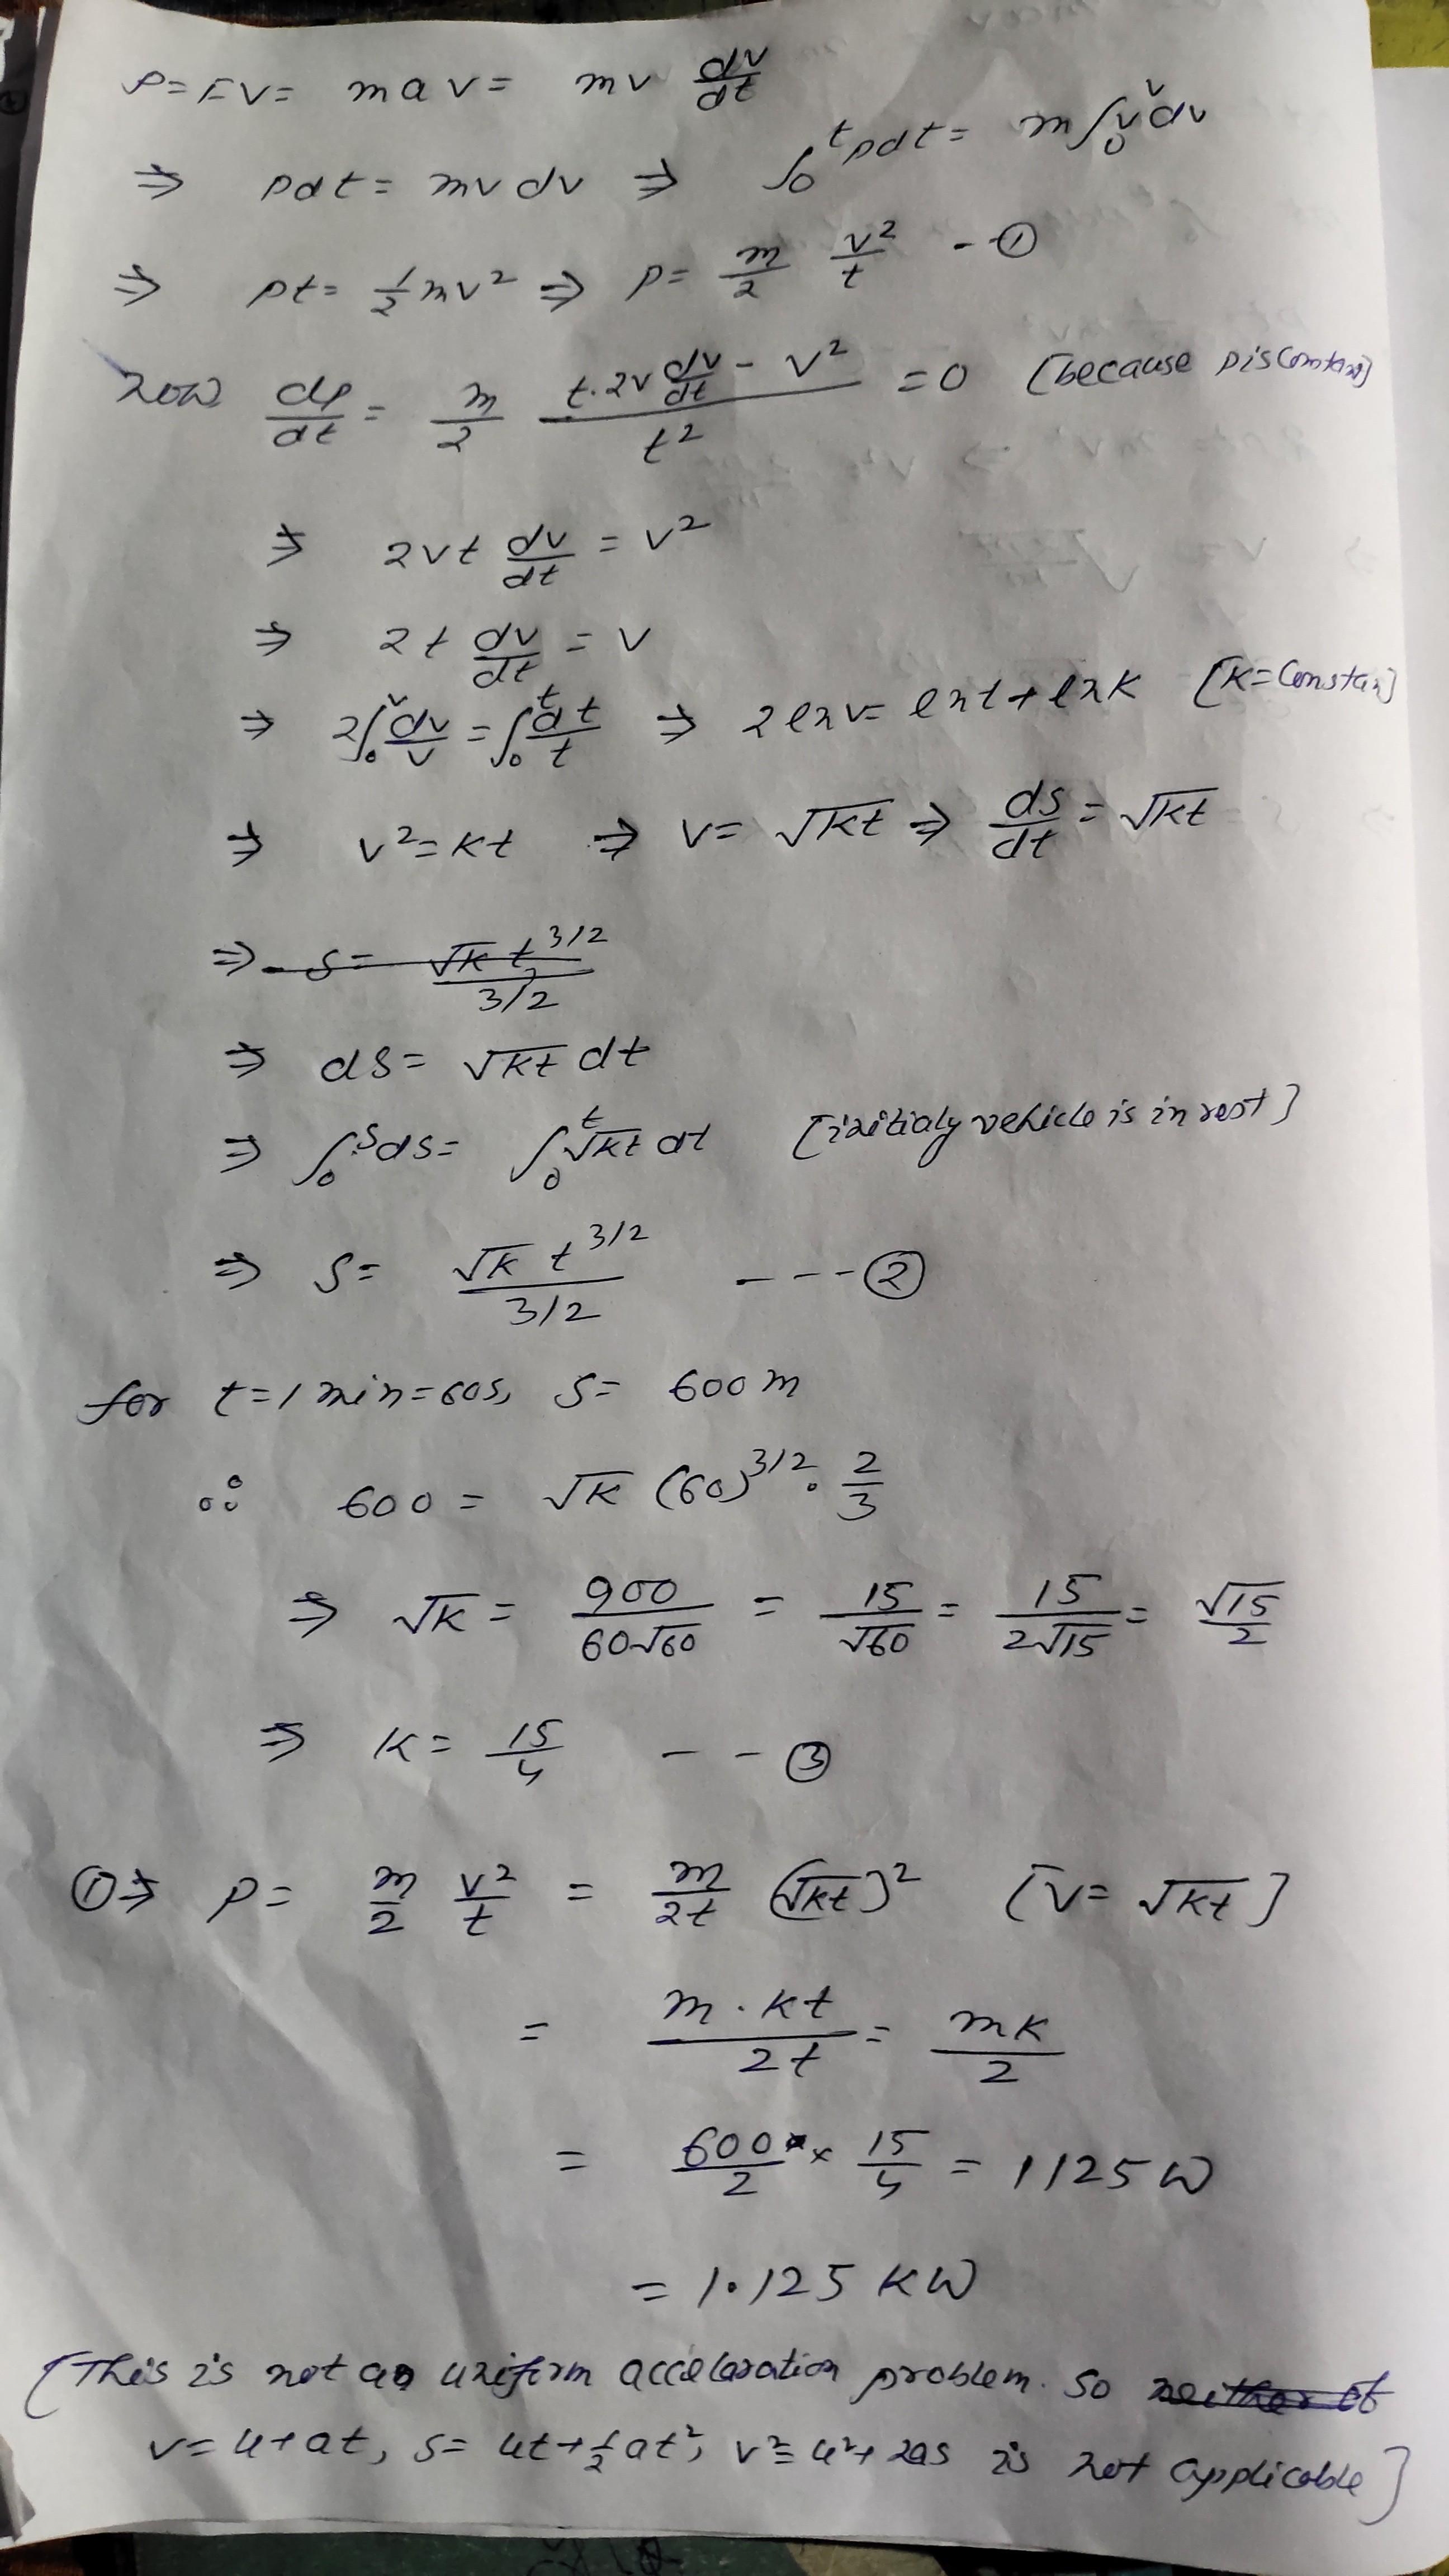 P = FV = m a v = mv dv/dt
⇒ pdt = mv dv ⇒ ∫₀ᵗ pdt = m∫₀ᵛ v dv
⇒ pt = 1/2 mv² ⇒ p = m/2 v²/t - ①
Now dp/dt = m/2 (t·2v dv/dt - v²)/t² = 0 [because p is constant]
⇒ 2vt dv/dt = v²
⇒ 2t dv/dt = v
⇒ 2∫₀ᵛ dv/v = ∫₀ᵗ dt/t ⇒ 2 ln v = ln t + ln k [K = Constan]
⇒ v² = kt ⇒ v = √kt ⇒ ds/dt = √kt
⇒ s = √k t^3/2 / 3/2
⇒ ds = √kt dt
⇒ ∫₀ˢ ds = ∫₀ᵗ √kt dt [initialy vehicle is in rest]
⇒ S = √k t^3/2 / 3/2 --- ②
for t = 1 min = 60s, S = 600 m
∴ 600 = √k (60)^3/2 · 2/3
⇒ √k = 900/60√60 = 15/√60 = 15/2√15 = √15/2
⇒ k = 15/4 -- ③
①⇒ p = m/2 v²/t = m/2t (√kt)² [v = √kt]
= m·kt/2t = mk/2
= 600/2 × 15/4 = 1125 W
= 1.125 KW
[This is not an uniform acceleration problem. So neither of
v = u + at, s = ut + 1/2 at², v² = u² + 2as is not applicable]